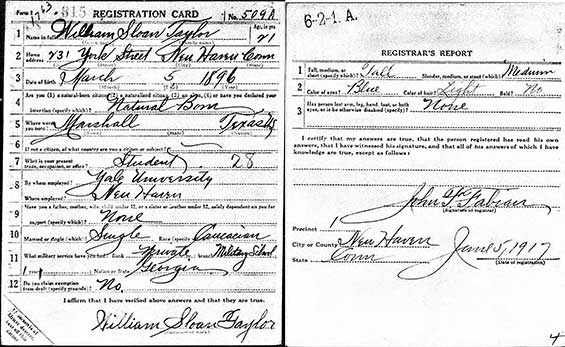 Form 1 1763 315 REGISTRATION CARD No. 509A
1 Name in full William Sloan Taylor Age, in yrs 21
2 Home address 231 York Street New Haven Conn
3 Date of birth March 5 1896
4 Are you (1) a natural-born citizen, (2) a naturalized citizen, (3) an alien, (4) or have you declared your
intention (specify which)? Natural Born
5 Where were you born? Marshall Texas US
6 If not a citizen, of what country are you a citizen or subject?
7 What is your present trade, occupation, or office? Student 28
8 By whom employed? Yale University
Where employed? New Haven
9 Have you a father, mother, wife, child under 12, or a sister or brother under 12, solely dependent on you for
support (specify which)? None
10 Married or single (which)? Single Race (specify which)? Caucasian
11 What military service have you had? Rank Private branch Military School
1 year Nation or State Georgia
12 Do you claim exemption from draft (specify grounds)? No.
I affirm that I have verified above answers and that they are true.
William Sloan Taylor
6-2-1. A.
REGISTRAR'S REPORT
1 Tall, medium, or short (specify which)? Tall Slender, medium, or stout (which)? Medium
2 Color of eyes? Blue Color of hair? Light Bald? No
3 Has person lost arm, leg, hand, foot, or both
eyes, or is he otherwise disabled (specify)? None
I certify that my answers are true, that the person registered has read his own
answers, that I have witnessed his signature, and that all of his answers of which I have
knowledge are true, except as follows:
John F. Fabian
(Signature of registrar)
Precinct 1
City or County New Haven
State Conn
June 5, 1917
(Date of registration)